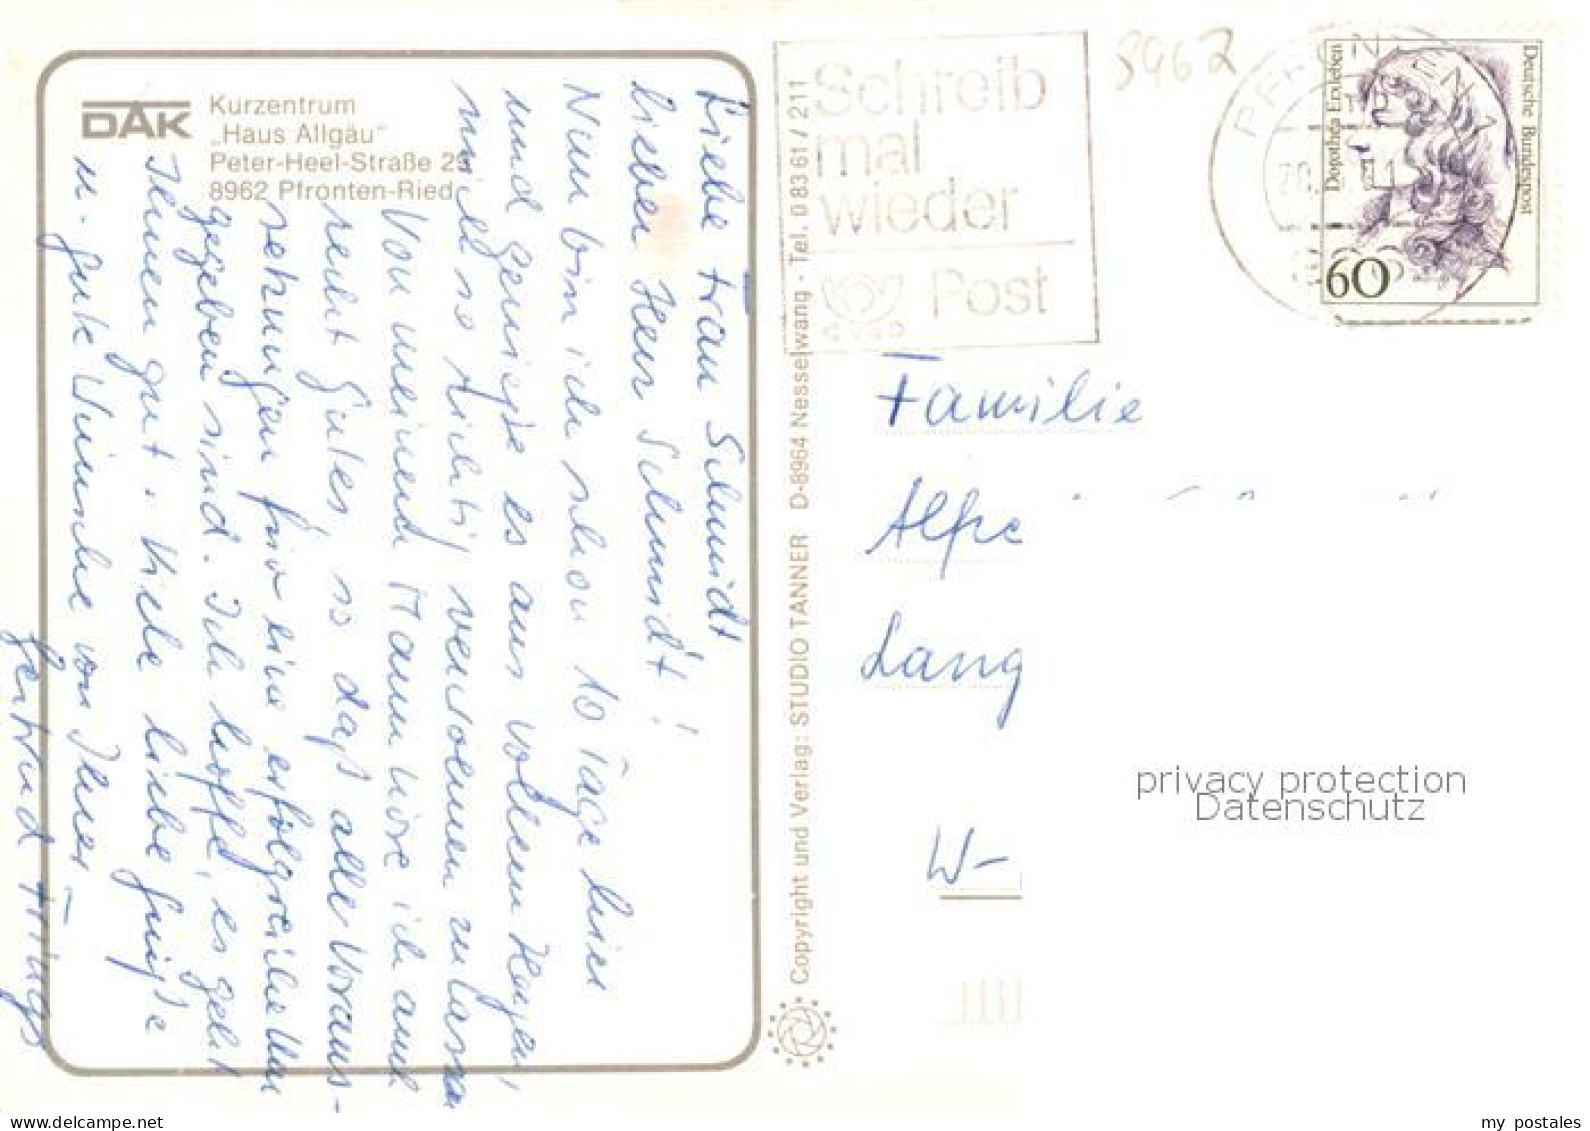 DAK
Kurzentrum
„Haus Allgäu“
Peter-Heel-Straße 29
8962 Pfronten-Ried
Liebe Frau Schmidt
lieber Herr Schmidt!
Nun bin ich schon 10 Tage hier
und genieße es aus vollem Herzen,
mich so richtig verwöhnen zu lassen
Von meinem Mann höre ich auch
recht Gutes, so daß alle Voraus-
setzungen für eine erfolgreiche Kur
gegeben sind. Ich hoffe, es geht
Ihnen gut. Viele liebe Grüße
u. gute Wünsche von Ihrer
Gertrud Frings
Copyright und Verlag: STUDIO TANNER D-8964 Nesselwang - Tel. 0 83 61 / 211
Schreib
mal
wieder
Post
8962
PFRONTEN
Dorothea Erxleben
Deutsche Bundespost
60
Familie
Alfre
Lang
W-
privacy protection
Datenschutz
my postales